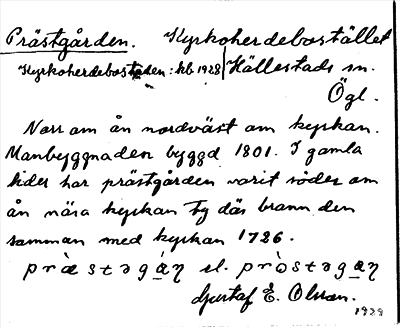 Prästgården. Kyrkoherdebostället
Kyrkoherdebostaden: kb 1928 Hällestads sn.
Ögl.
Norr om ån nordväst om kyrkan.
Manbyggnaden byggd 1801. I gamla
tider har prästgården varit söder om
ån nära kyrkan ty där brann den
samman med kyrkan 1726.
præ̀stəgáŋ el. prὸstəgaŋ
Gustaf E. Olsson.
1929